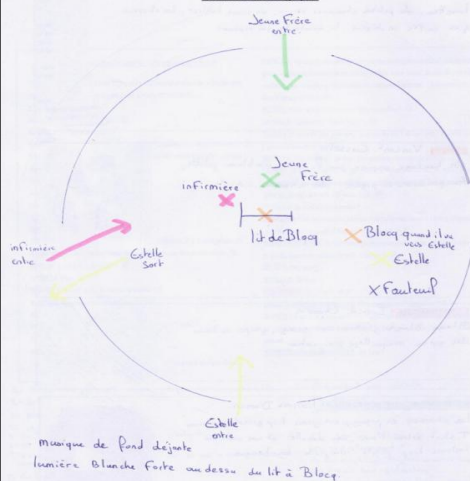 Jeune Frère
entre
Jeune
Frère
infirmière
lit de Blocq
Blocq quand il va
vers Estelle
Estelle
X Fauteuil
infirmière
entre
Estelle
Sort
Estelle
entre
musique de fond déjante
lumière Blanche Forte au dessu du lit à Blocq.